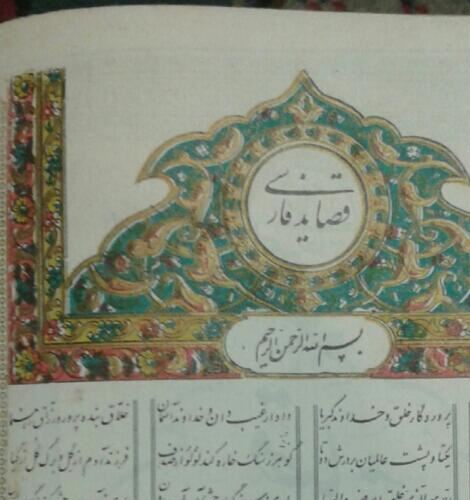 قصاید فارسی
بسم الله الرحمن الرحیم
پروردگار خلق و خداوند کبریا
دادار غیب دان و خداوند آسمان
خلاق بنده پرور و رزاق
یکتا و پشت عالمیان بر درش دوتا
گوهر ز سنگ خاره کند لؤلؤ از صدف
فرزند آدم از گل و برگ گل از گیا